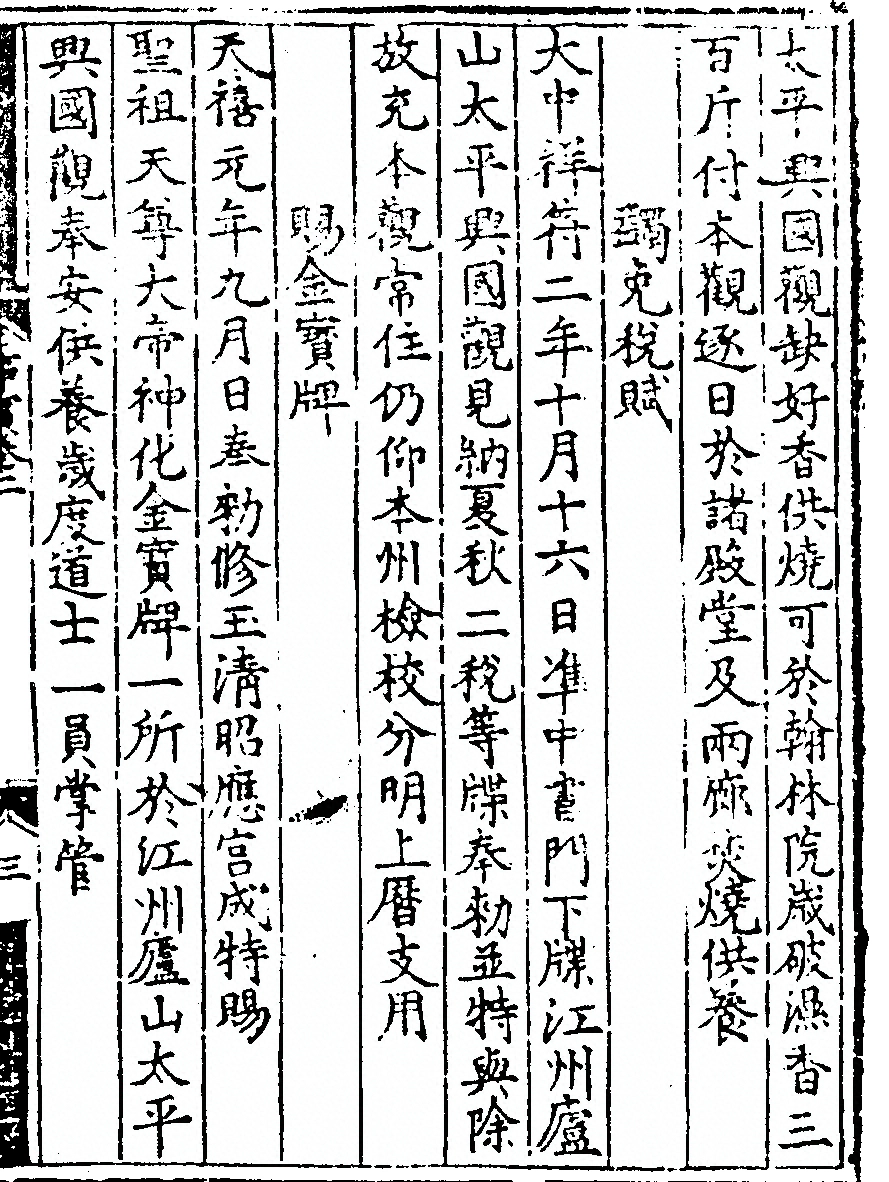 太平興國觀缺好香供燒可於翰林院歲破濕香三
百斤付本觀逐日於諸殿堂及兩廊焚燒供養
蠲免稅賦
大中祥符二年十月十六日准中書門下牒江州廬
山太平興國觀見納夏秋二稅等牒奉勑並特與除
放充本觀常住仍仰本州檢校分明上曆支用
賜金寶牌
天禧元年九月日奉勑修玉清昭應宮成特賜
聖祖天尊大帝神化金寶牌一所於江州廬山太平
興國觀奉安供養歲度道士一員掌管
三